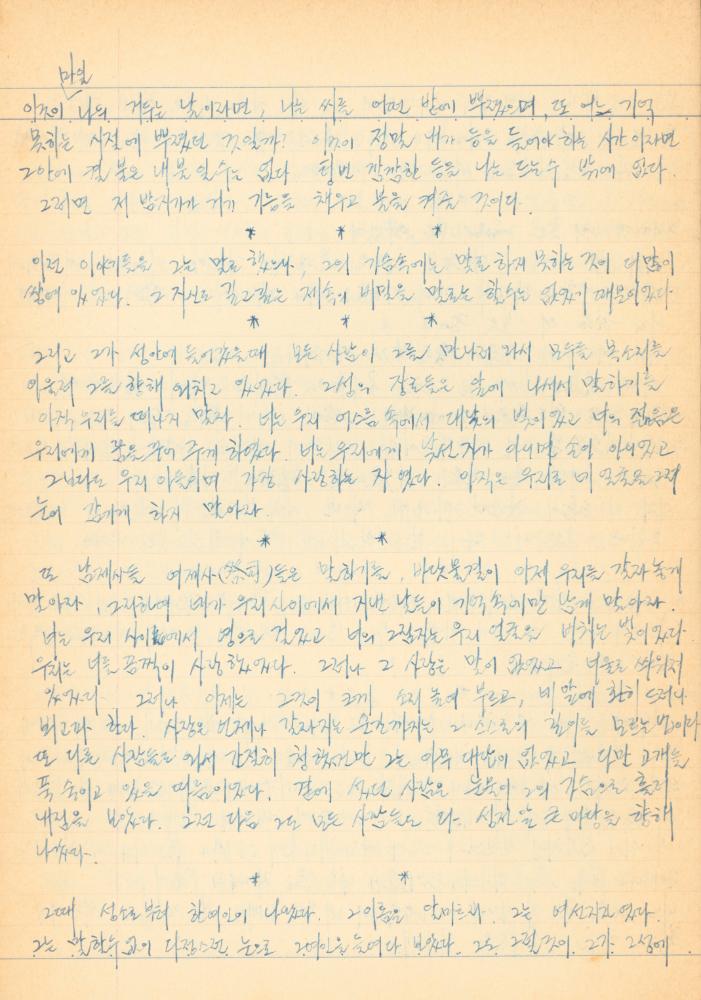 만일
이것이 나의 거두는 날이라면, 나는 씨를 어떤 밭에 뿌렸으며, 또 어느 기억
못하는 시절에 뿌렸던 것일까? 이것이 정말 내가 등을 들어야 하는 시간이라면
그안에 켤 불은 내 불일 수는 없다. 텅빈 깜깜한 등을 나는 드는수 밖에 없다.
그러면 저 밤지기가 거기 기름을 채우고 불을 켜줄 것이다.
* * *
이런 이야기들을 그는 말로 했으나, 그의 가슴속에는 말로 하지 못하는 것이 더 많이
쌓여 있었다. 그 자신도 깊고깊은 제속의 비밀을 말로는 할수는 없었기 때문이었다
* * *
그리고 그가 성안에 들어갔을때 모든 사람이 그를 만나러 와서 모두들 목소리를
어울려 그를 향해 외치고 있었다. 그성의 장로들은 앞에 나서서 말하기를
아직 우리를 떠나지 말라. 너는 우리 어스름 속에서 대낮의 빛이었고 너의 젊음은
우리에게 꿈을 꾸어 주게 하였다. 너는 우리에게 낯선 자가 아니며 손이 아니었고
그보다도 우리 아들이며 가장 사랑하는 자 였다. 아직은 우리로 네 얼굴을 그려
눈이 감기게 하지 말아라.
* *
또 남제사들 여제사(祭司)들은 말하기를, 바닷물결이 이제 우리를 갈라놓게
말아라, 그리하여 네가 우리사이에서 지낸 날들이 기억속에만 남게 말아라.
너는 우리 사이에서 영으로 걸었고 너의 그림자는 우리 얼굴을 비치는 빛이었다.
우리는 너를 끔찍이 사랑했었다. 그러나 그 사랑은 말이 없었고 너울로 싸워져
있었다. 그러나 이제는 그것이 크게 소리높여 부르고, 네 앞에 환히 드러나
뵈고파 한다. 사랑은 언제나 갈라지는 순간까지는 그 스스로의 깊이를 모르는 법이다
또 다른 사람들도 와서 간절히 청했건만 그는 아무 대답이 없었고 다만 고개를
푹 숙이고 있을 따름이었다. 곁에 섰던 사람은 눈물이 그의 가슴으로 흘러
내림을 보았다. 그런 다음 그도 모든 사람들도 다 성전앞 큰 마당을 향해
나갔다.
* *
그때 성소로부터 한여인이 나왔다. 그이름은 알미트라 그는 여선지자였다.
그는 말할수없이 다정스런 눈으로 그여인을 들여다 보았다. 그도 그럴것이 그가 그성에